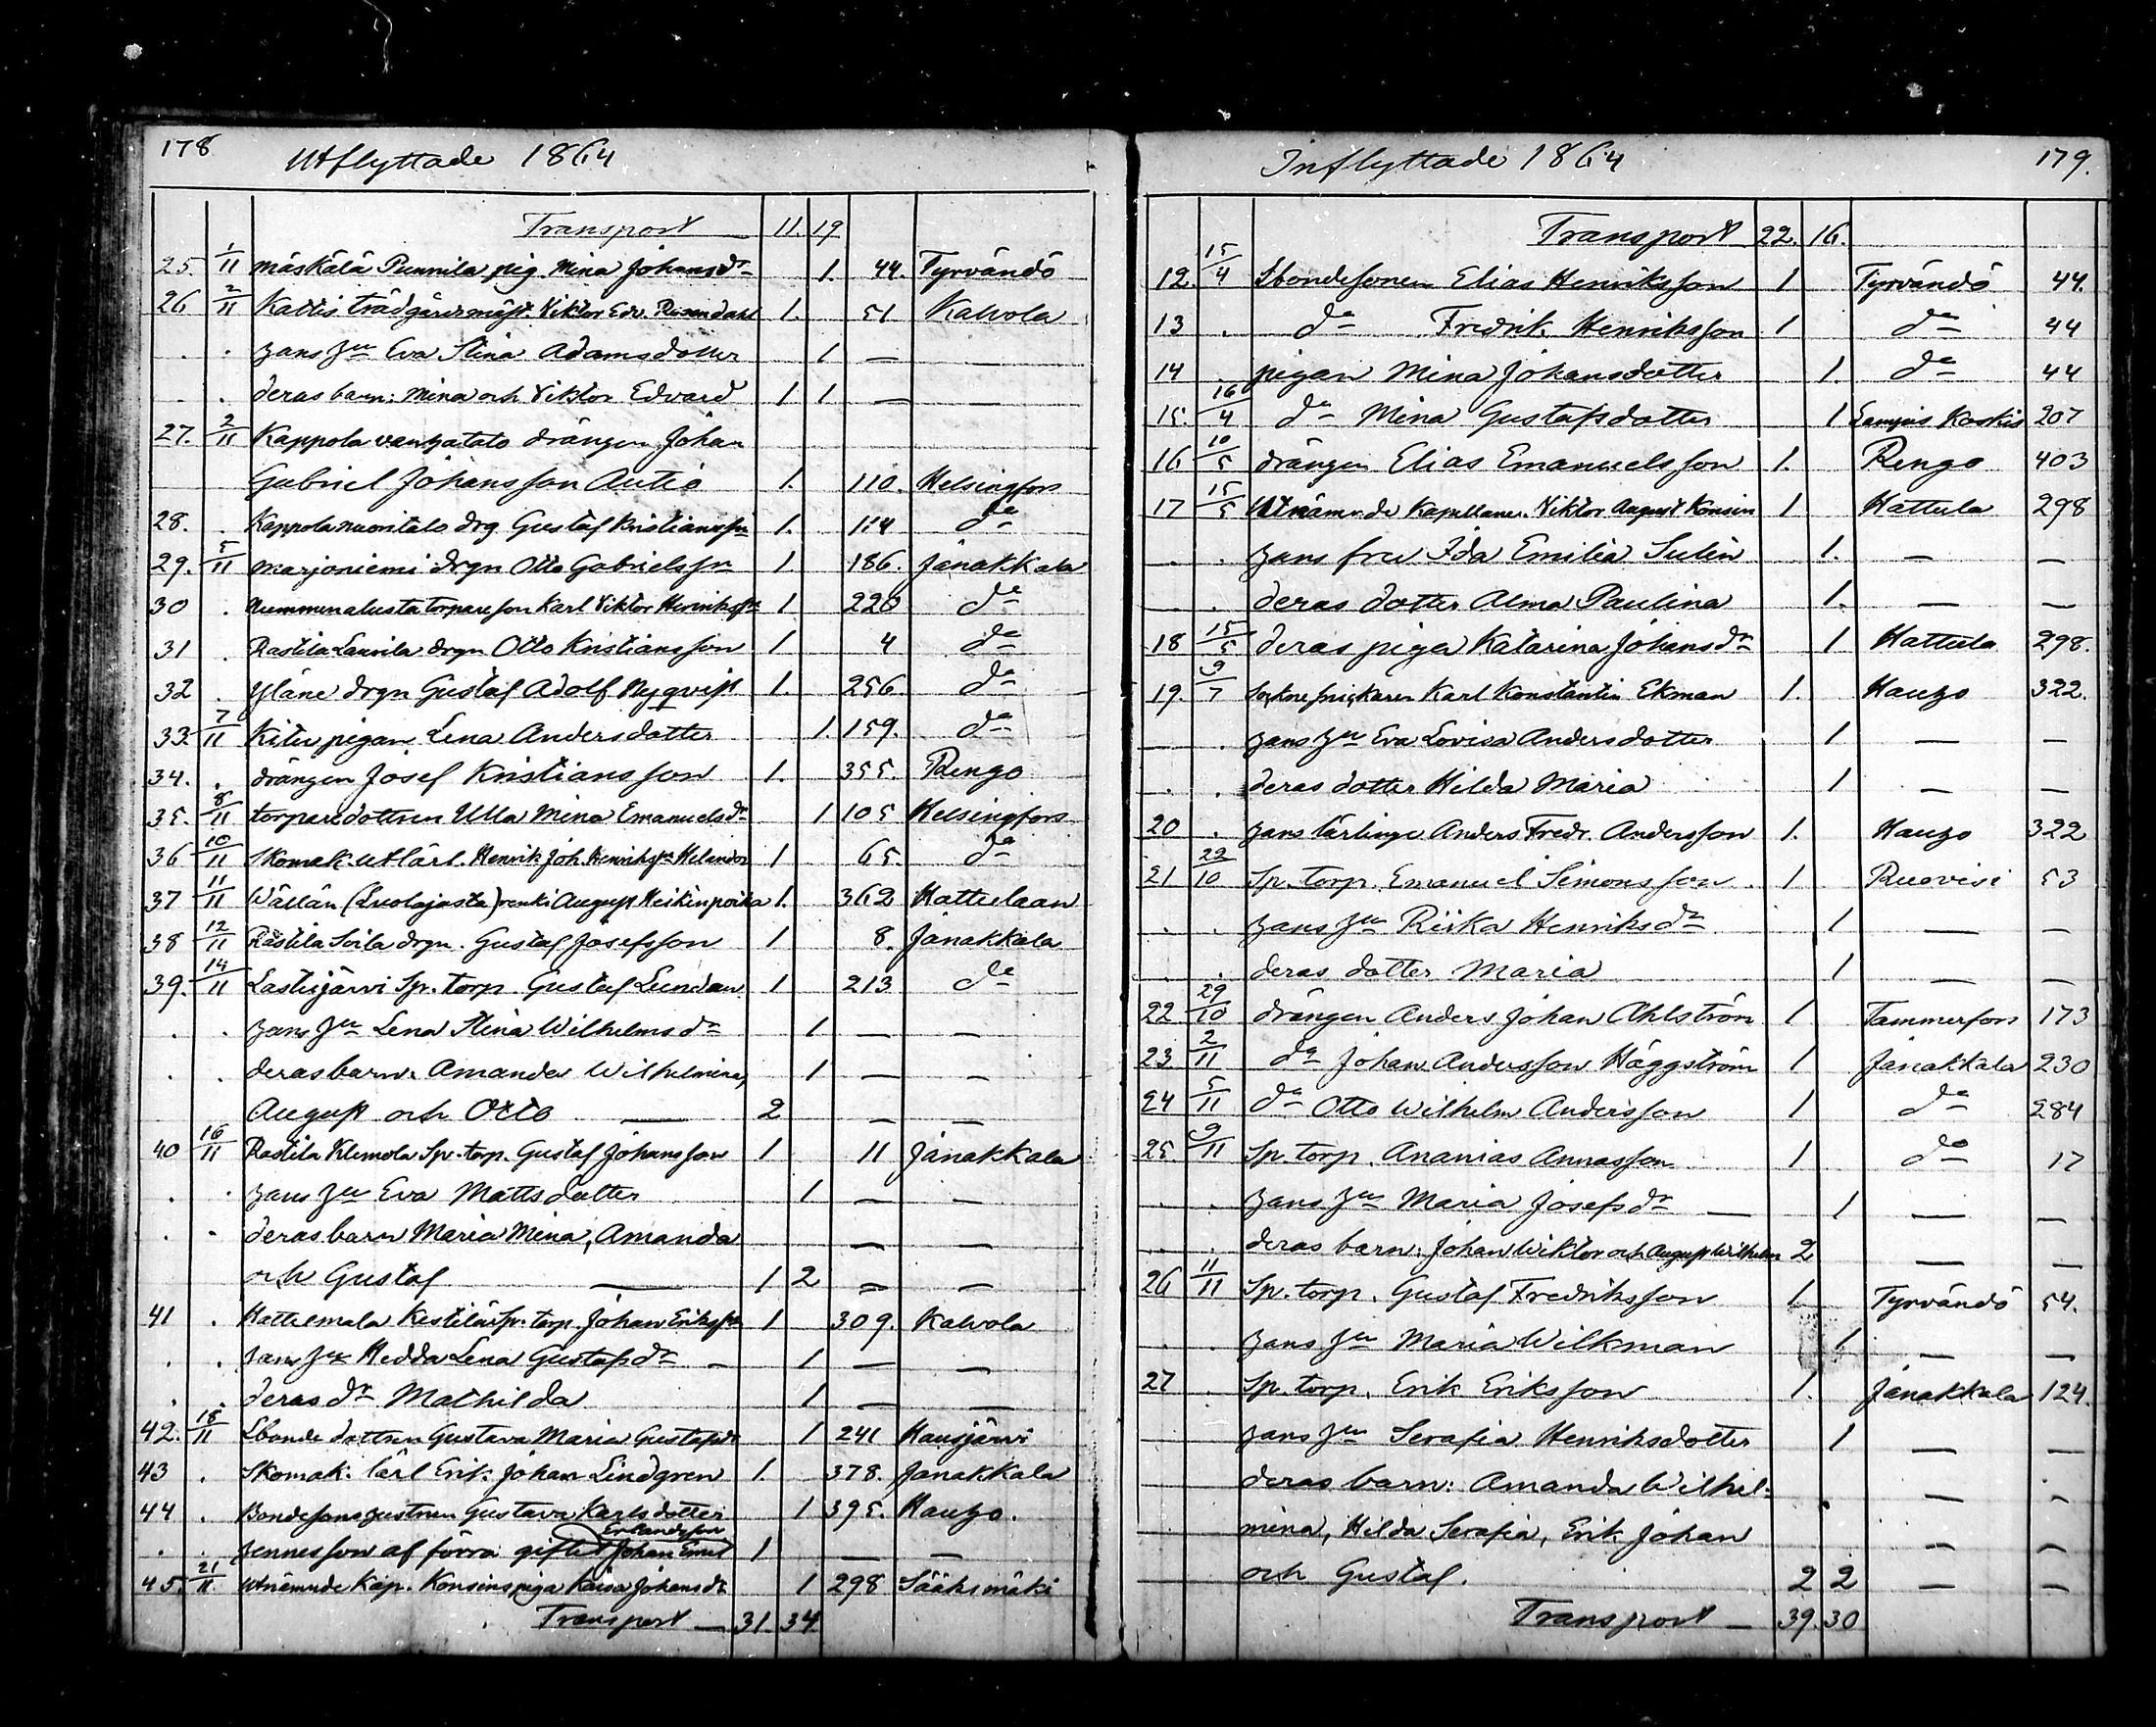 178
Utflyttade 1864
Transport 11. 19
25 1/11 Mäskälä Punnila pig. Mina Johansdr 1. 44. Tyrvändö
26 2/11 Kattis trädgårdsmäst. Viktor Edv. Rosendahl 1. 51 Kalvola
. . hans hu Eva Stina Adamsdotter 1 —
. . deras barn: Mina och Viktor Edvard 1 1 — —
27. 2/11 Kappola vanhatalo drängen Johan
Gabriel Johansson Autio 1. 110. Helsingfors
28. . Kappola nuoritalo drg Gustaf Kristiansson 1. 114 do
29. 5/11 Marjoniemi drgn Otto Gabrielsson 1. 186. Janakkala
30 . Nummenalusta torpareson Karl Viktor Henriksson 1 220 do
31 . Rastila Laurila drgn Otto Kristiansson 1 4 do
32 . Yläne drgn Gustaf Adolf Nyqvist 1. 256 do
33. 7/11 Kitu pigan Lena Andersdotter 1. 159. do
34. . drängen Josef Kristiansson 1. 355. Rengo
35. 8/11 torparedottren Ulla Mina Emanuelsdr 1 105 Helsingfors
36 10/11 Skomak. utlärl. Henrik Joh. Henriksson Helander 1 65. do
37 11/11 Wällän (Luolajasta) renki August Heikinpoika 1. 362 Hattulaan
38 12/11 Rastila Soila drgn. Gustaf Josefsson 1 8. Janakkala
39. 14/11 Lastujärvi Sp. torp. Gustaf Lundan 1 213 do
. . hans hu Lena Stina Wilhelmsdr 1 — —
. . deras barn: Amanda Wilhelmina, 1 — —
August och Otto — 2 — —
40 16/11 Rastila Klemola Sp. torp. Gustaf Johansson 1 11 Janakkala
. . hans hu Eva Mattsdotter 1 — —
. . deras barn Maria Mina, Amanda — —
och Gustaf — 1 2 — —
41 . Hattelmala Kestilä Sp. torp. Johan Eriksson 1 309. Kalvola
. . hans hu Hedda Lena Gustafsdr — 1 — —
. . deras dr Mathilda 1 — —
42. 18/11 Lbonde dottren Gustava Maria Gustafsdr 1 241 Hausjärvi
43 . Skomak. lärl Erik Johan Lindgren 1. 378. Janakkala
44 . Bondesons hustrun Gustava Karlsdotter 1 395. Hauho.
Erlandsson
. . hennes son af förra giftet Johan Emil 1 — —
45. 21/11 utnämnde Kap. Konsins piga Kaisa Johansdr 1 298 Sääksmäki
Transport — 31. 34.
Inflyttade 1864
179.
Transport 22. 16.
12. 15/4 Lbondesonen Elias Henriksson 1 Tyrvändö 44.
13 . do Fredrik Henriksson 1 do 44
14 . pigan Mina Johansdotter 1. do 44
15. 16/4 do Mina Gustafsdotter 1 Lampis Koskis 207
16 10/5 drängen Elias Emanuelsson 1. Rengo 403
17 15/5 Utnämnde Kapellanen Viktor August Konsin 1 Hattula 298
. . hans fru Ida Emilia Sulin 1. — —
. . deras dotter Alma Paulina 1. — —
18 15/5 deras piga Katarina Johansdr 1 Hattula 298.
19. 9/7 Sockne snickaren Karl Konstantin Ekman 1. Hauho 322.
— . hans hu Eva Lovisa Andersdotter 1 — —
. . deras dotter Hilda Maria 1 — —
20 . hans lärlinge Anders Fredr. Andersson 1. Hauho 322
21 22/10 Sp. torp. Emanuel Simonsson 1 Ruovesi 53
. . hans hu Riika Henriksdr 1 — —
. . deras dotter Maria 1 — —
22. 29/10 drängen Anders Johan Ahlström 1. Tammerfors 173
23. 2/11 do Johan Andersson Häggström 1 Janakkala 230
24 5/11 do Otto Wilhelm Andersson 1 do 284
25. 9/11 Sp. torp. Ananias Annasson 1 do 17
. . hans hu Maria Josefsdr — 1 — —
. . deras barn: Johan Wiktor och August Wilhelm 2 — —
26 11/11 Sp. torp. Gustaf Fredriksson 1 Tyrvändö 54.
. . hans hu Maria Wilkman 1 — —
27 . Sp. torp. Erik Eriksson 1. Janakkala 124.
hans hu Serafia Henriksdotter 1 — —
deras barn: Amanda Wilhel- — —
mina, Hilda Serafia, Erik Johan — —
och Gustaf. 2 2 — —
Transport — 39. 30